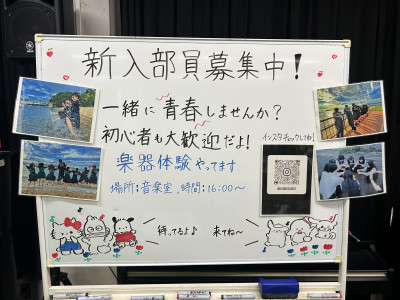 新入部員募集中！
一緒に青春しませんか？
初心者も大歓迎だよ！
インスタチェックしてね！
楽器体験やってます
場所：音楽室、時間：16:00～
待ってるよ♪ 来てね～